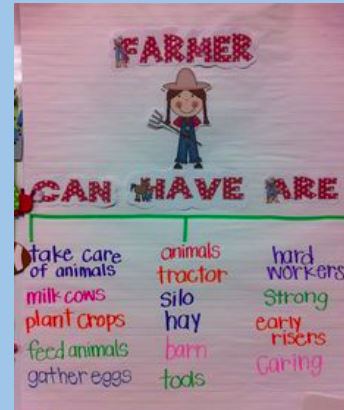 FARMER
CAN HAVE ARE
take care
of animals
milk cows
plant crops
feed animals
gather eggs
animals
tractor
silo
hay
barn
tools
hard
workers
Strong
early
risers
Caring